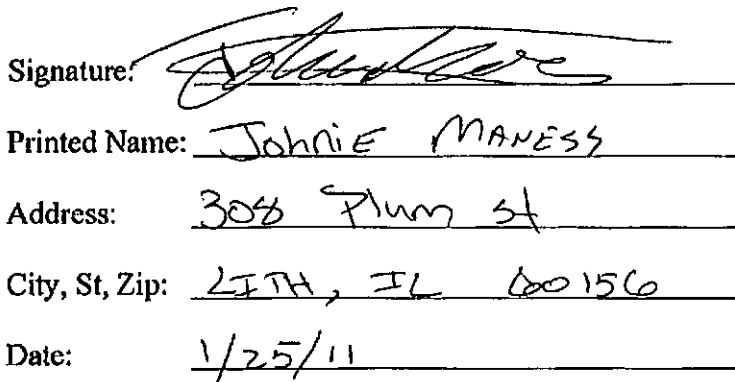 Signature:
Printed Name: Johnie Maness
Address: 308 Plum st
City, St, Zip: LITH, IL 60156
Date: 1/25/11